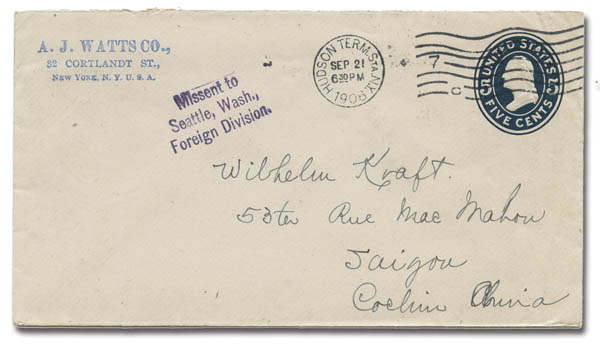 A. J. WATTS CO.,
32 CORTLANDT ST.,
NEW YORK, N. Y. U. S. A.
Missent to
Seattle, Wash.,
Foreign Division.
HUDSON TERM. STA. N.Y.
SEP 21
630 PM
7
C
UNITED STATES
FIVE CENTS
Wilhelm Kraft.
53ter Rue Mac Mahon
Saigon
Cochin China